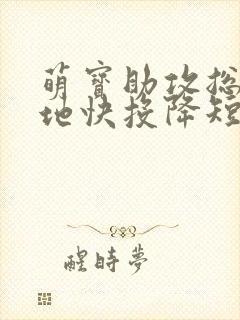 萌寶助攻
地快投降短
醒時夢